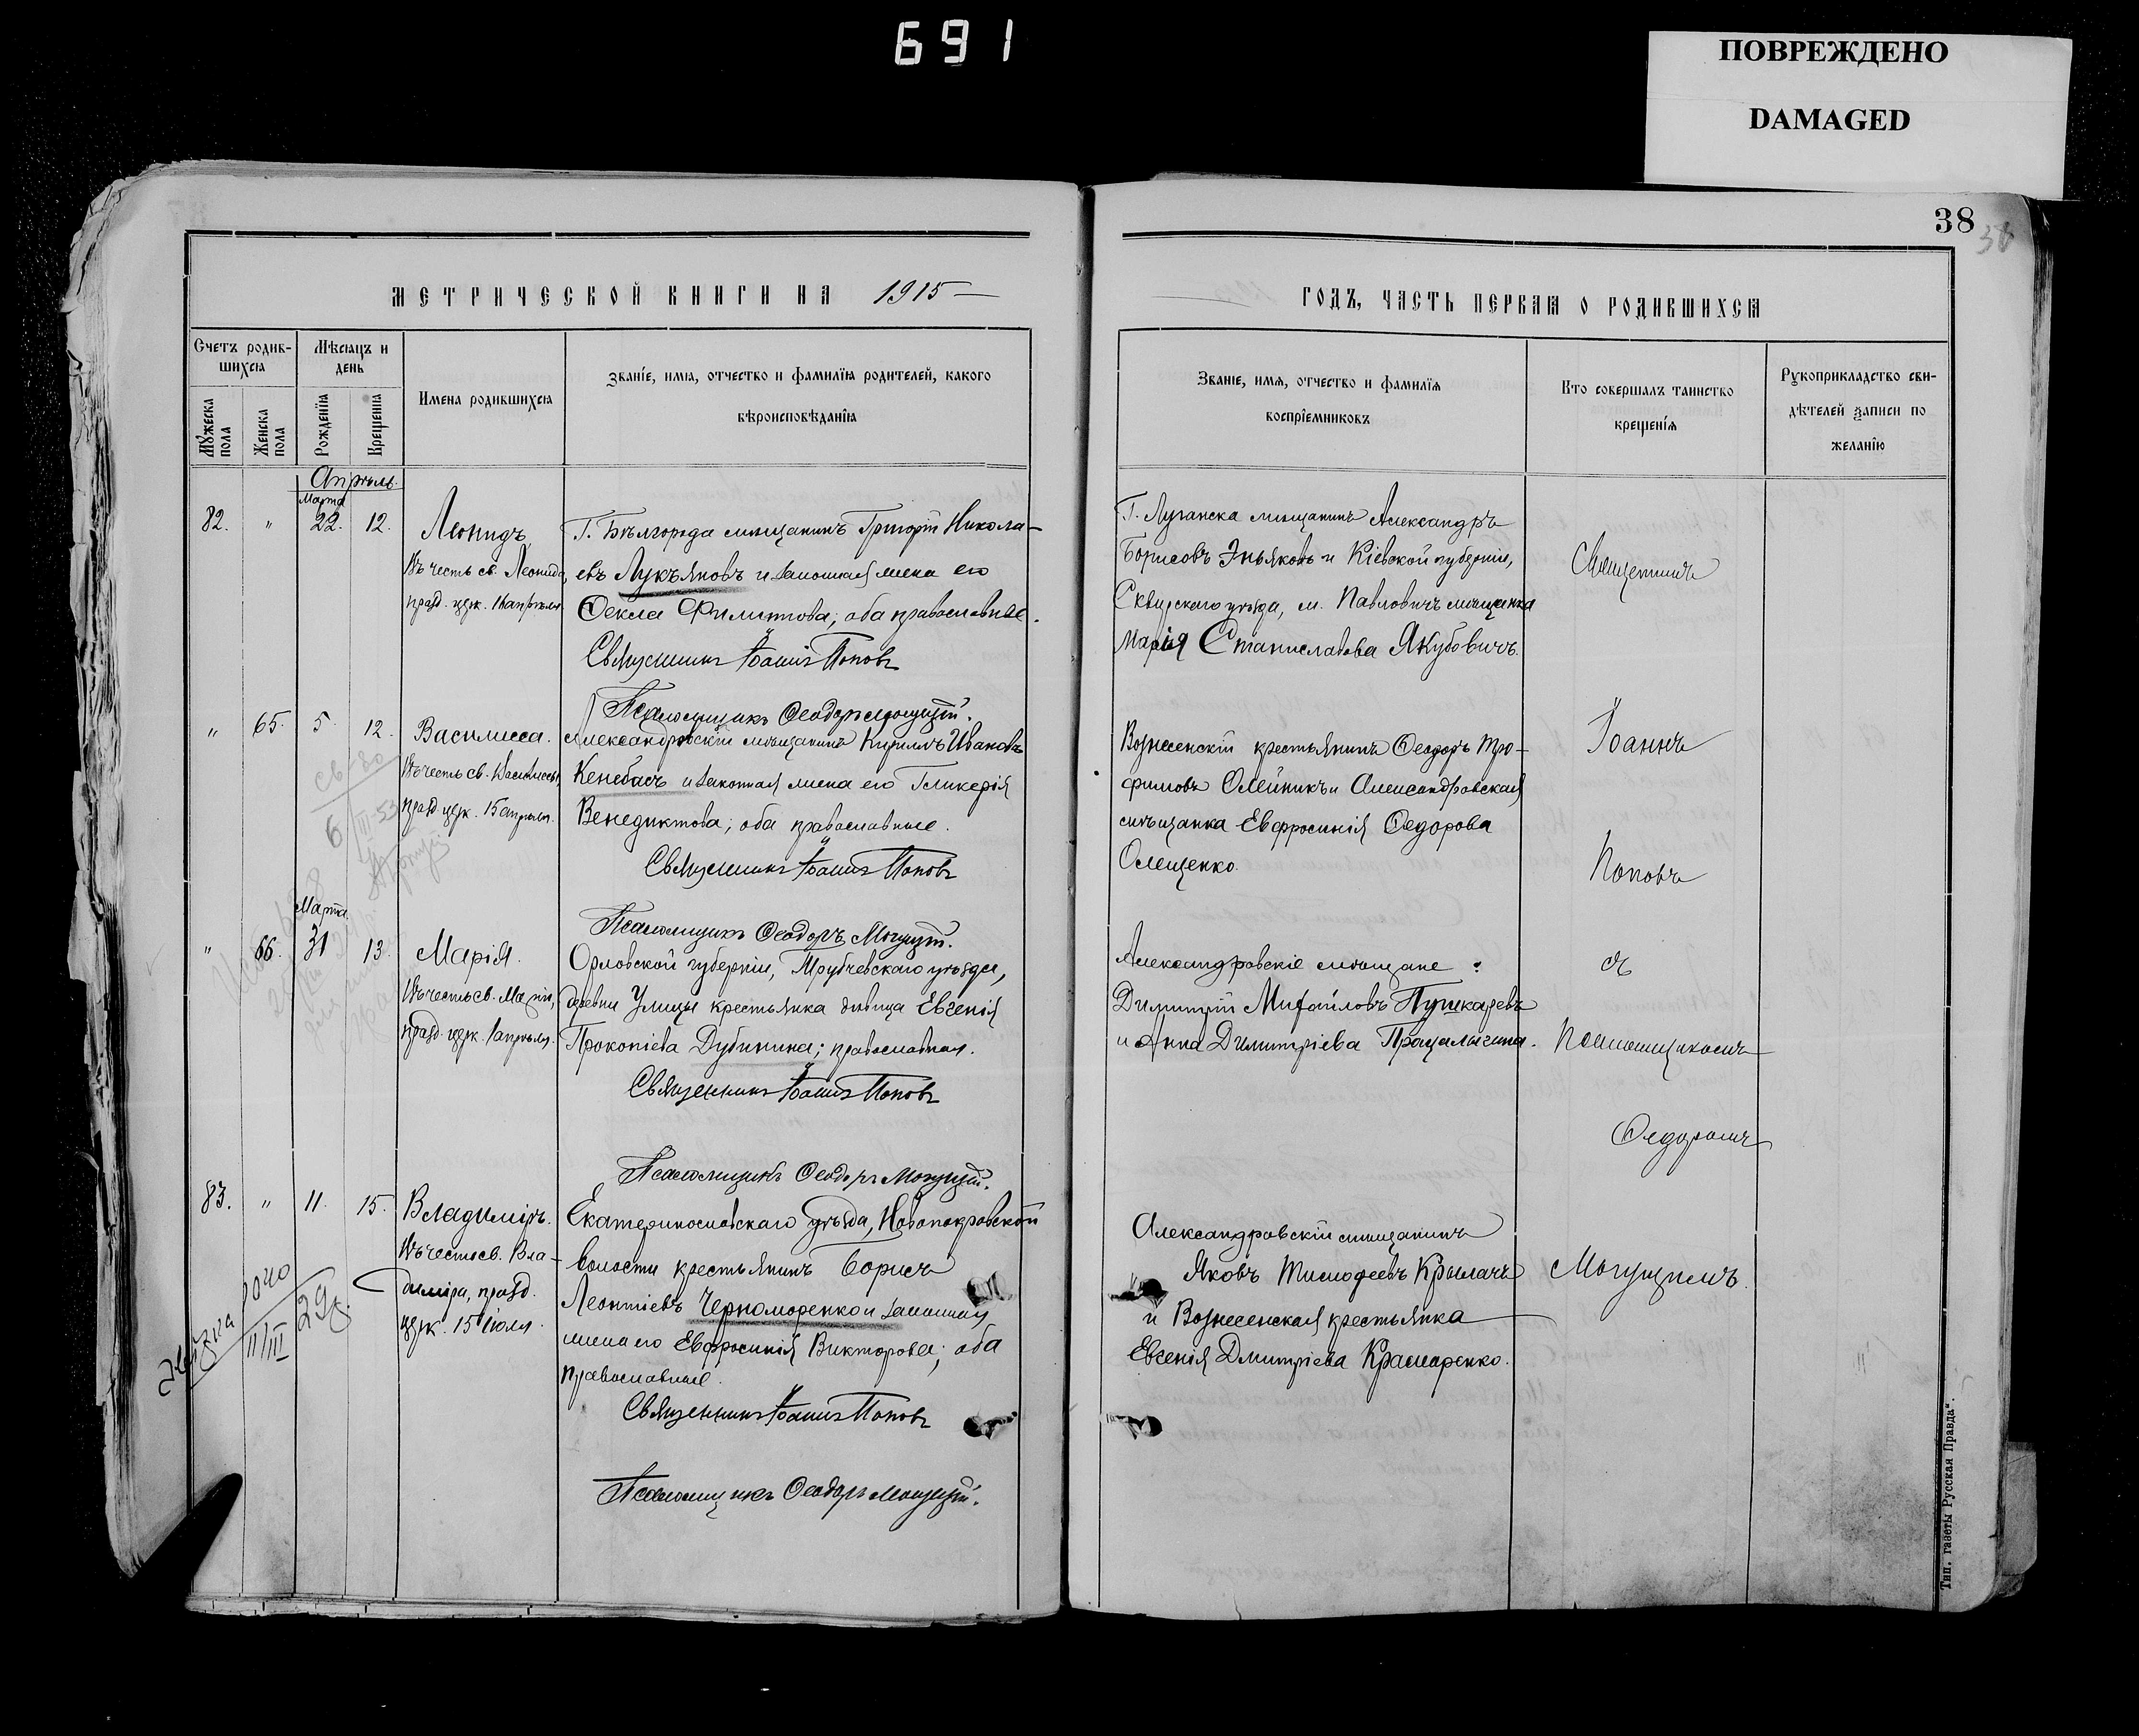 691
ПОВРЕЖДЕНО
DAMAGED
38
МЕТРИЧЕСКОЙ КНИГИ НА 1915
Счетъ родив-
шихся
Мѣсяцъ и
день
Мужеска
пола
Женска
пола
Рожденїя
Крещенїя
Имена родившихся
Званїе, имя, отчество и фамилїя родителей, какого
вѣроисповѣданїя
Апрѣль.
Марта
82. " 22. 12. Леонидъ
Въ честь св. Леонида,
празд. церк. апрѣля
Г. Бѣлгорода мѣщанинъ Григорій Никола-
евъ Лукъяновъ и законная жена его
Ѳекла Филиппова; оба православные.
Священникъ Іоаннъ Поповъ
Псаломщикъ Ѳеодоръ Могущій.
" 65. 5. 12. Василисса.
Въ честь св. Василиссы,
празд. церк. 15 апрѣля.
Александровскій мѣщанинъ Кириллъ Ивановъ
Кенебасъ и законная жена его Гликерія
Венедиктова; оба православные.
Священникъ Іоаннъ Поповъ
Псаломщикъ Ѳеодоръ Могущій.
Марта.
" 66. 31 13. Марія.
Въ честь св. Маріи,
празд. церк. 1 апрѣля.
Орловской губерніи, Трубчевскаго уѣзда,
деревни Улицы крестьянка дѣвица Евгенія
Прокопіева Дубинина; православная.
Священникъ Іоаннъ Поповъ
Псаломщикъ Ѳеодоръ Могущій.
83. " 11. 15. Владиміръ.
Въ честь св. Вла-
диміра, празд.
церк. 15 іюля.
Екатеринославскаго уѣзда, Новопокровской
волости крестьянинъ Борисъ
Леонтіевъ Черноморенко и законная
жена его Евфросинія Викторова; оба
православные.
Священникъ Іоаннъ Поповъ
Псаломщикъ Ѳеодоръ Могущій.
ГОДЪ, ЧАСТЬ ПЕРВАЯ О РОДИВШИХСЯ
Званїе, имя, отчество и фамилїя
воспрїемниковъ
Кто совершалъ таинство
крещенїя
Рукоприкладство сви-
дѣтелей записи по
желанїю
Г. Луганска мѣщанинъ Александръ
Борисовъ и Кіевской губерніи,
Сквирскаго уѣзда, м. Павловичъ мѣщанка
Марія Станиславова Якубовичъ.
Вознесенскій крестьянинъ Ѳеодоръ Тро-
фимовъ Олейникъ и Александровская
мѣщанка Евфросинія Ѳедорова
Олещенко.
Александровскіе мѣщане:
Димитрій Михайловъ Пушкаревъ
и Анна Димитріева
Александровскій мѣщанинъ
Яковъ Тимофеевъ Крылачъ
и Вознесенская крестьянка
Евгенія Дмитріева Красноренко.
Священникъ
Іоаннъ
Поповъ
съ
Псаломщикомъ
Ѳедоромъ
Могущимъ.
Тип. газеты Русская Правда".